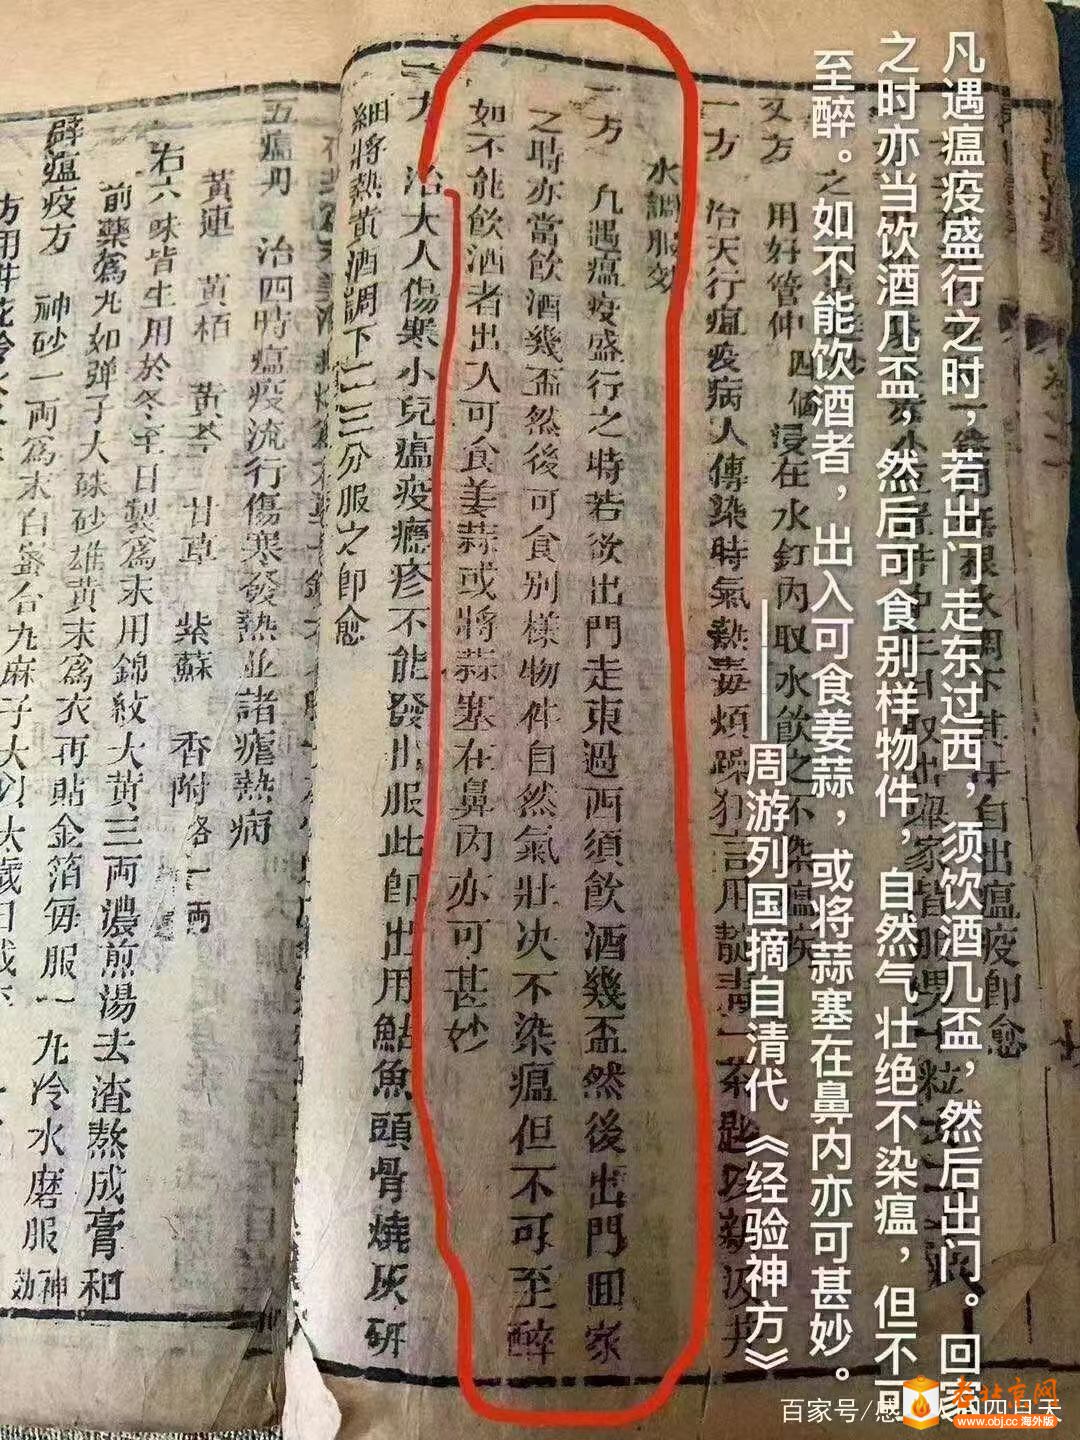 凡遇瘟疫盛行之时，若出门走东过西，须饮酒几盃，然后出门。回家
之时亦当饮酒几盃，然后可食别样物件，自然气壮绝不染瘟，但不可
至醉。之如不能饮酒者，出入可食姜蒜，或将蒜塞在鼻内亦可甚妙。
———周游列国摘自清代《经验神方》
又方 用好管仲四個浸在水釘内取水飲之不染瘟疾
一方 治天行瘟疫病人傳染時氣熱毒煩躁狂言用靛青一茶匙以新汲井
水調服効
一方 凡遇瘟疫盛行之時若欲出門走東過西須飲酒幾盃然後出門囬家
之時亦當飲酒幾盃然後可食别樣物件自然氣壯决不染瘟但不可至醉
如不能飲酒者出入可食姜蒜或將蒜塞在鼻内亦可甚妙
一方 治大人傷寒小兒瘟疫瘾疹不能發出服此即出用鮎魚頭骨燒灰研
細將熱黄酒調下二三分服之即愈
五瘟丹 治四時瘟疫流行傷寒發熱並諸瘧熱病
黄連 黄栢 黄芩 甘草 紫蘇 香附 各一両
右六味皆生用於冬至日製爲末用錦紋大黄三両濃煎湯去渣熬成膏和
前藥爲丸如弹子大硃砂雄黄末爲衣再貼金箔每服一丸冷水磨服神効
辟瘟疫方 神砂一両爲末白蜜合丸麻子大以太歲日
百家号/
四日天
老北京网
www.obj.cc 海外版